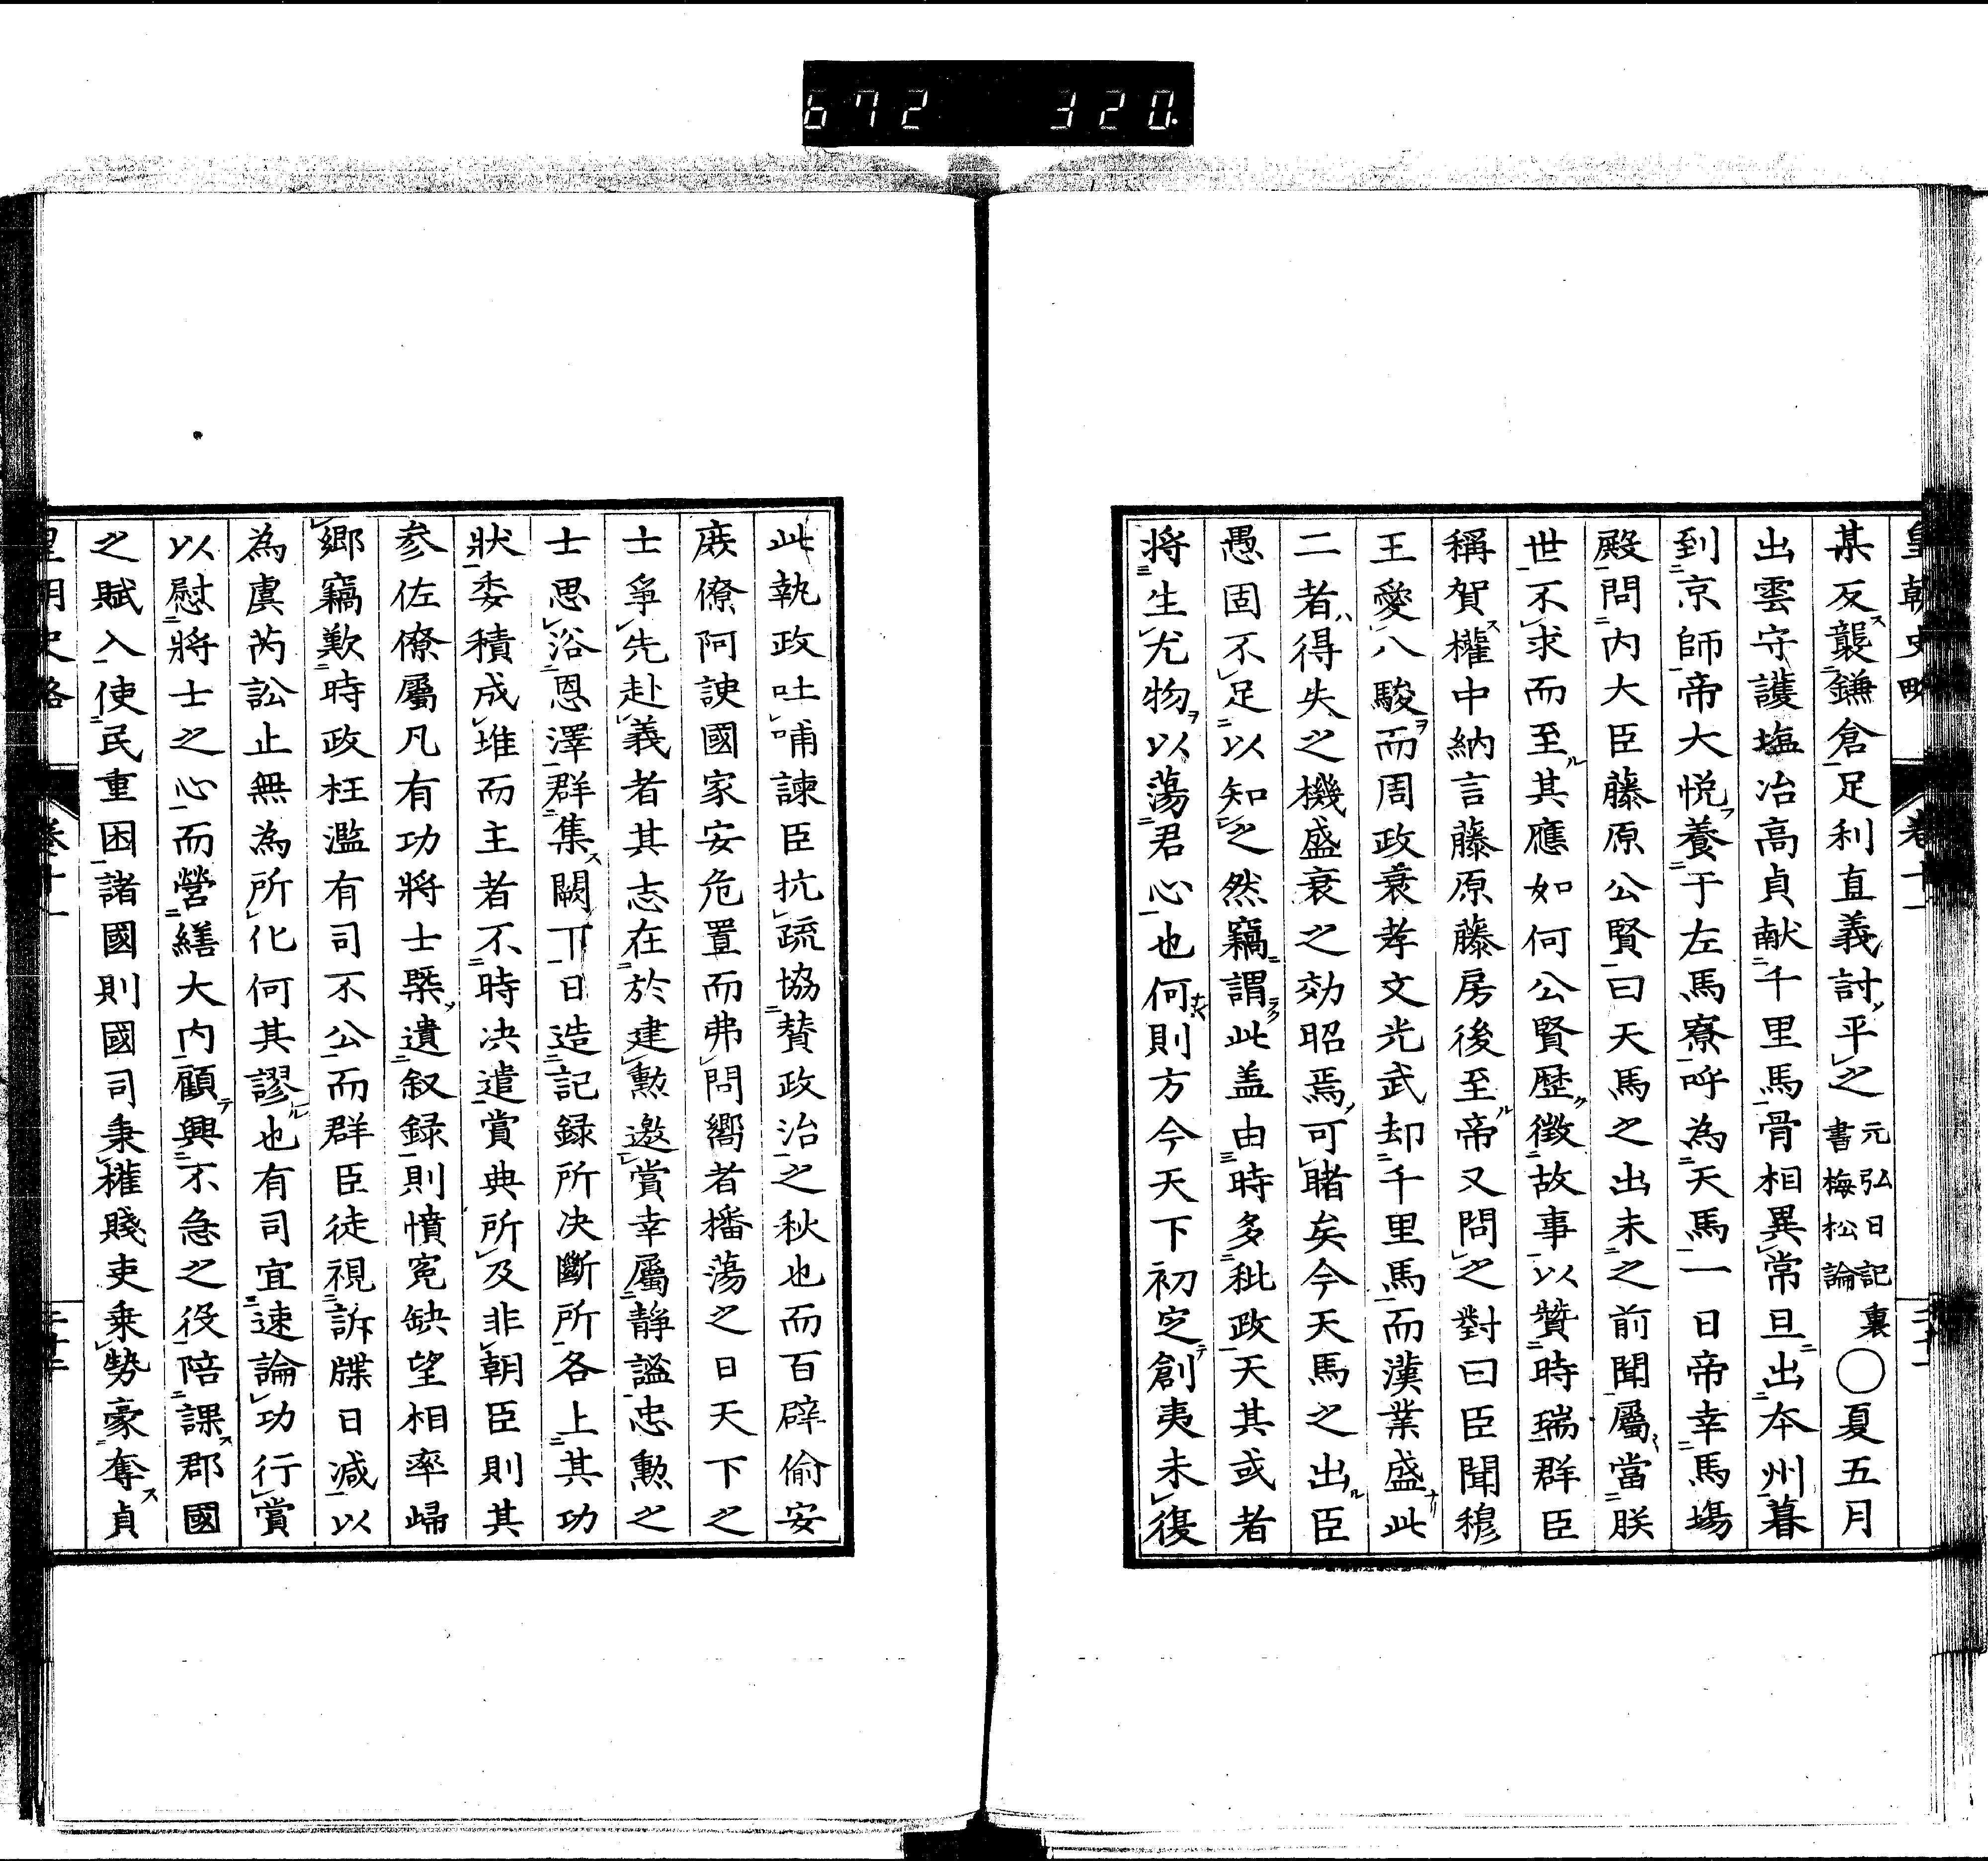 672 320
皇朝史略 卷十一
某反襲鎌倉足利直義討平之元弘日記裏書梅松論〇夏五月
出雲守護塩冶高貞献千里馬骨相異常旦出本州暮
到京師帝大悦養于左馬寮呼為天馬一日帝幸馬場
殿問内大臣藤原公賢曰天馬之出未之前聞屬當朕
世不求而至其應如何公賢歴徴故事以贊時瑞群臣
稱賀權中納言藤原藤房後至帝又問之對曰臣聞穆
王愛八駿而周政衰孝文光武却千里馬而漢業盛此
二者得失之機盛衰之効昭焉可睹矣今天馬之出臣
愚固不足以知之然竊謂此盖由時多秕政天其或者
将生尤物以蕩君心也何則方今天下初定創夷未復
此執政吐哺諫臣抗疏協賛政治之秋也而百辟偷安
庻僚阿諛國家安危置而弗問嚮者播蕩之日天下之
士爭先赴義者其志在於建勲邀賞幸屬静謐忠勲之
士思浴恩澤群集闕下日造記録所决斷所各上其功
狀委積成堆而主者不時决遣賞典所及非朝臣則其
参佐僚屬凡有功將士槩遺叙録則憤寃缺望相率歸
郷竊歎時政枉濫有司不公而群臣徒視訴牒日減以
為虞芮訟止無為所化何其謬也有司宜速論功行賞
以慰將士之心而營繕大内顧興不急之役陪課郡國
之賦入使民重困諸國則國司秉權賤吏乗勢豪奪貞
皇朝史略 卷十一